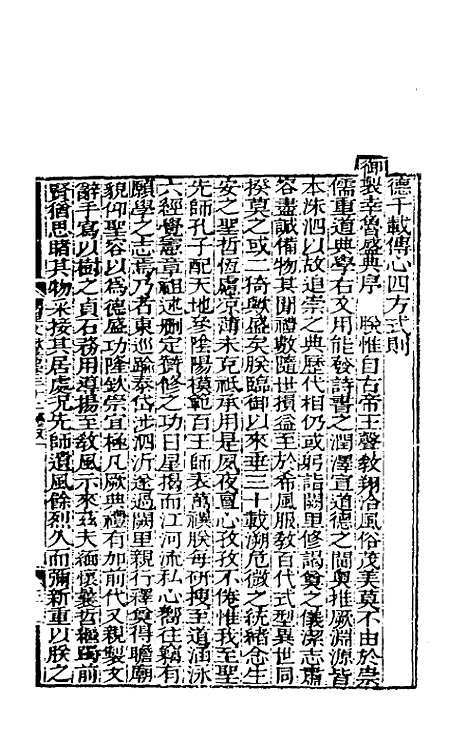 德千載傳心四方式則
御製幸魯盛典序　朕惟自古帝王聲教翔洽風俗茂美莫不由於崇
儒重道典學右文用能發詩書之潤澤宣道德之閫奧推厥淵源皆
本洙泗以故追崇之典歷代相仍或躬詣闕里修謁奠之儀潔志肅
容盡誠備物其閒禮數隨世損益至於希風服教百代式型異世同
揆莫之或二猗歟盛矣朕臨御以來垂三十載溯危微之統緒念生
安之聖哲恆慮涼薄未克祗承用是夙夜亶心孜孜不倦惟我至聖
先師孔子配天地參陰陽模範百王師表萬禩朕每研搜至道涵泳
六經覺憲章祖述刪定贊修之功日星揭而江河流私心嚮往竊有
願學之志焉乃者東巡踰泰岱涉泗沂遂過闕里親行釋奠得瞻廟
貌仰聖容以為德盛功隆欽崇宜極凡厥典禮有加前代又親製文
辭手寫以樹之貞石務用導揚至教風示來茲夫緬懷曩哲楹蹈前
賢猶思睹其物采接其居處況先師遺風餘烈久而彌新重以朕之